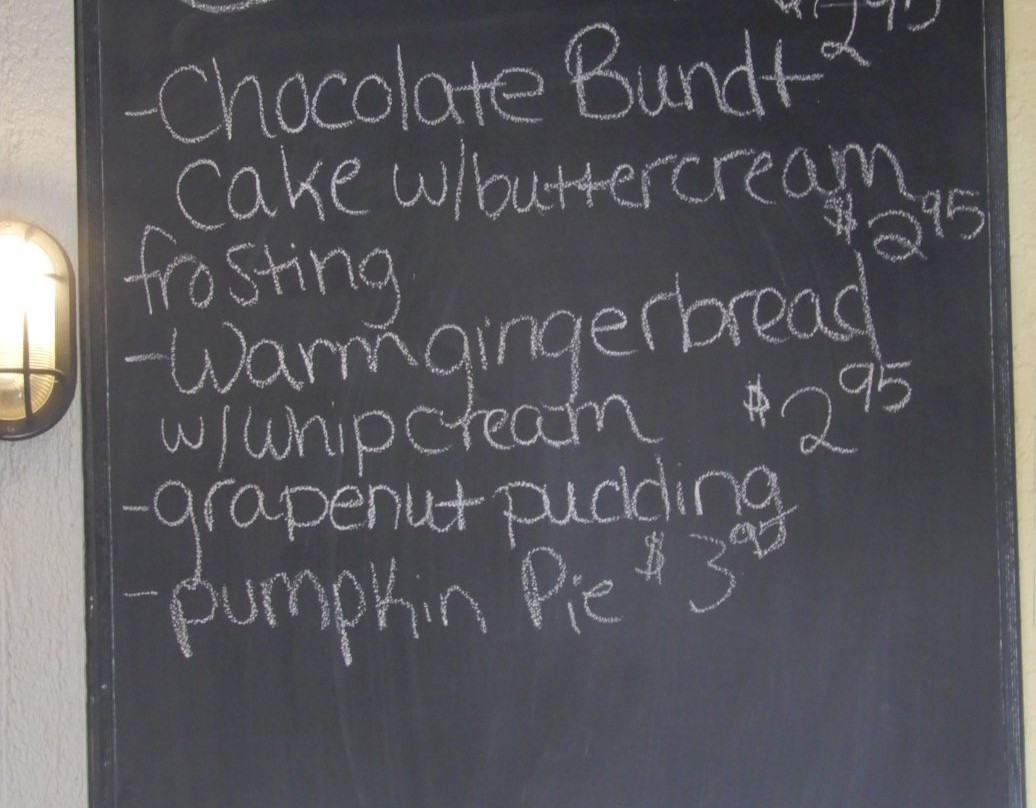 -Chocolate Bundt
Cake w/buttercream
$2.95
frosting
-Warm gingerbread
w/whipcream $2.95
-grapenut pudding
-pumpkin Pie $3.95